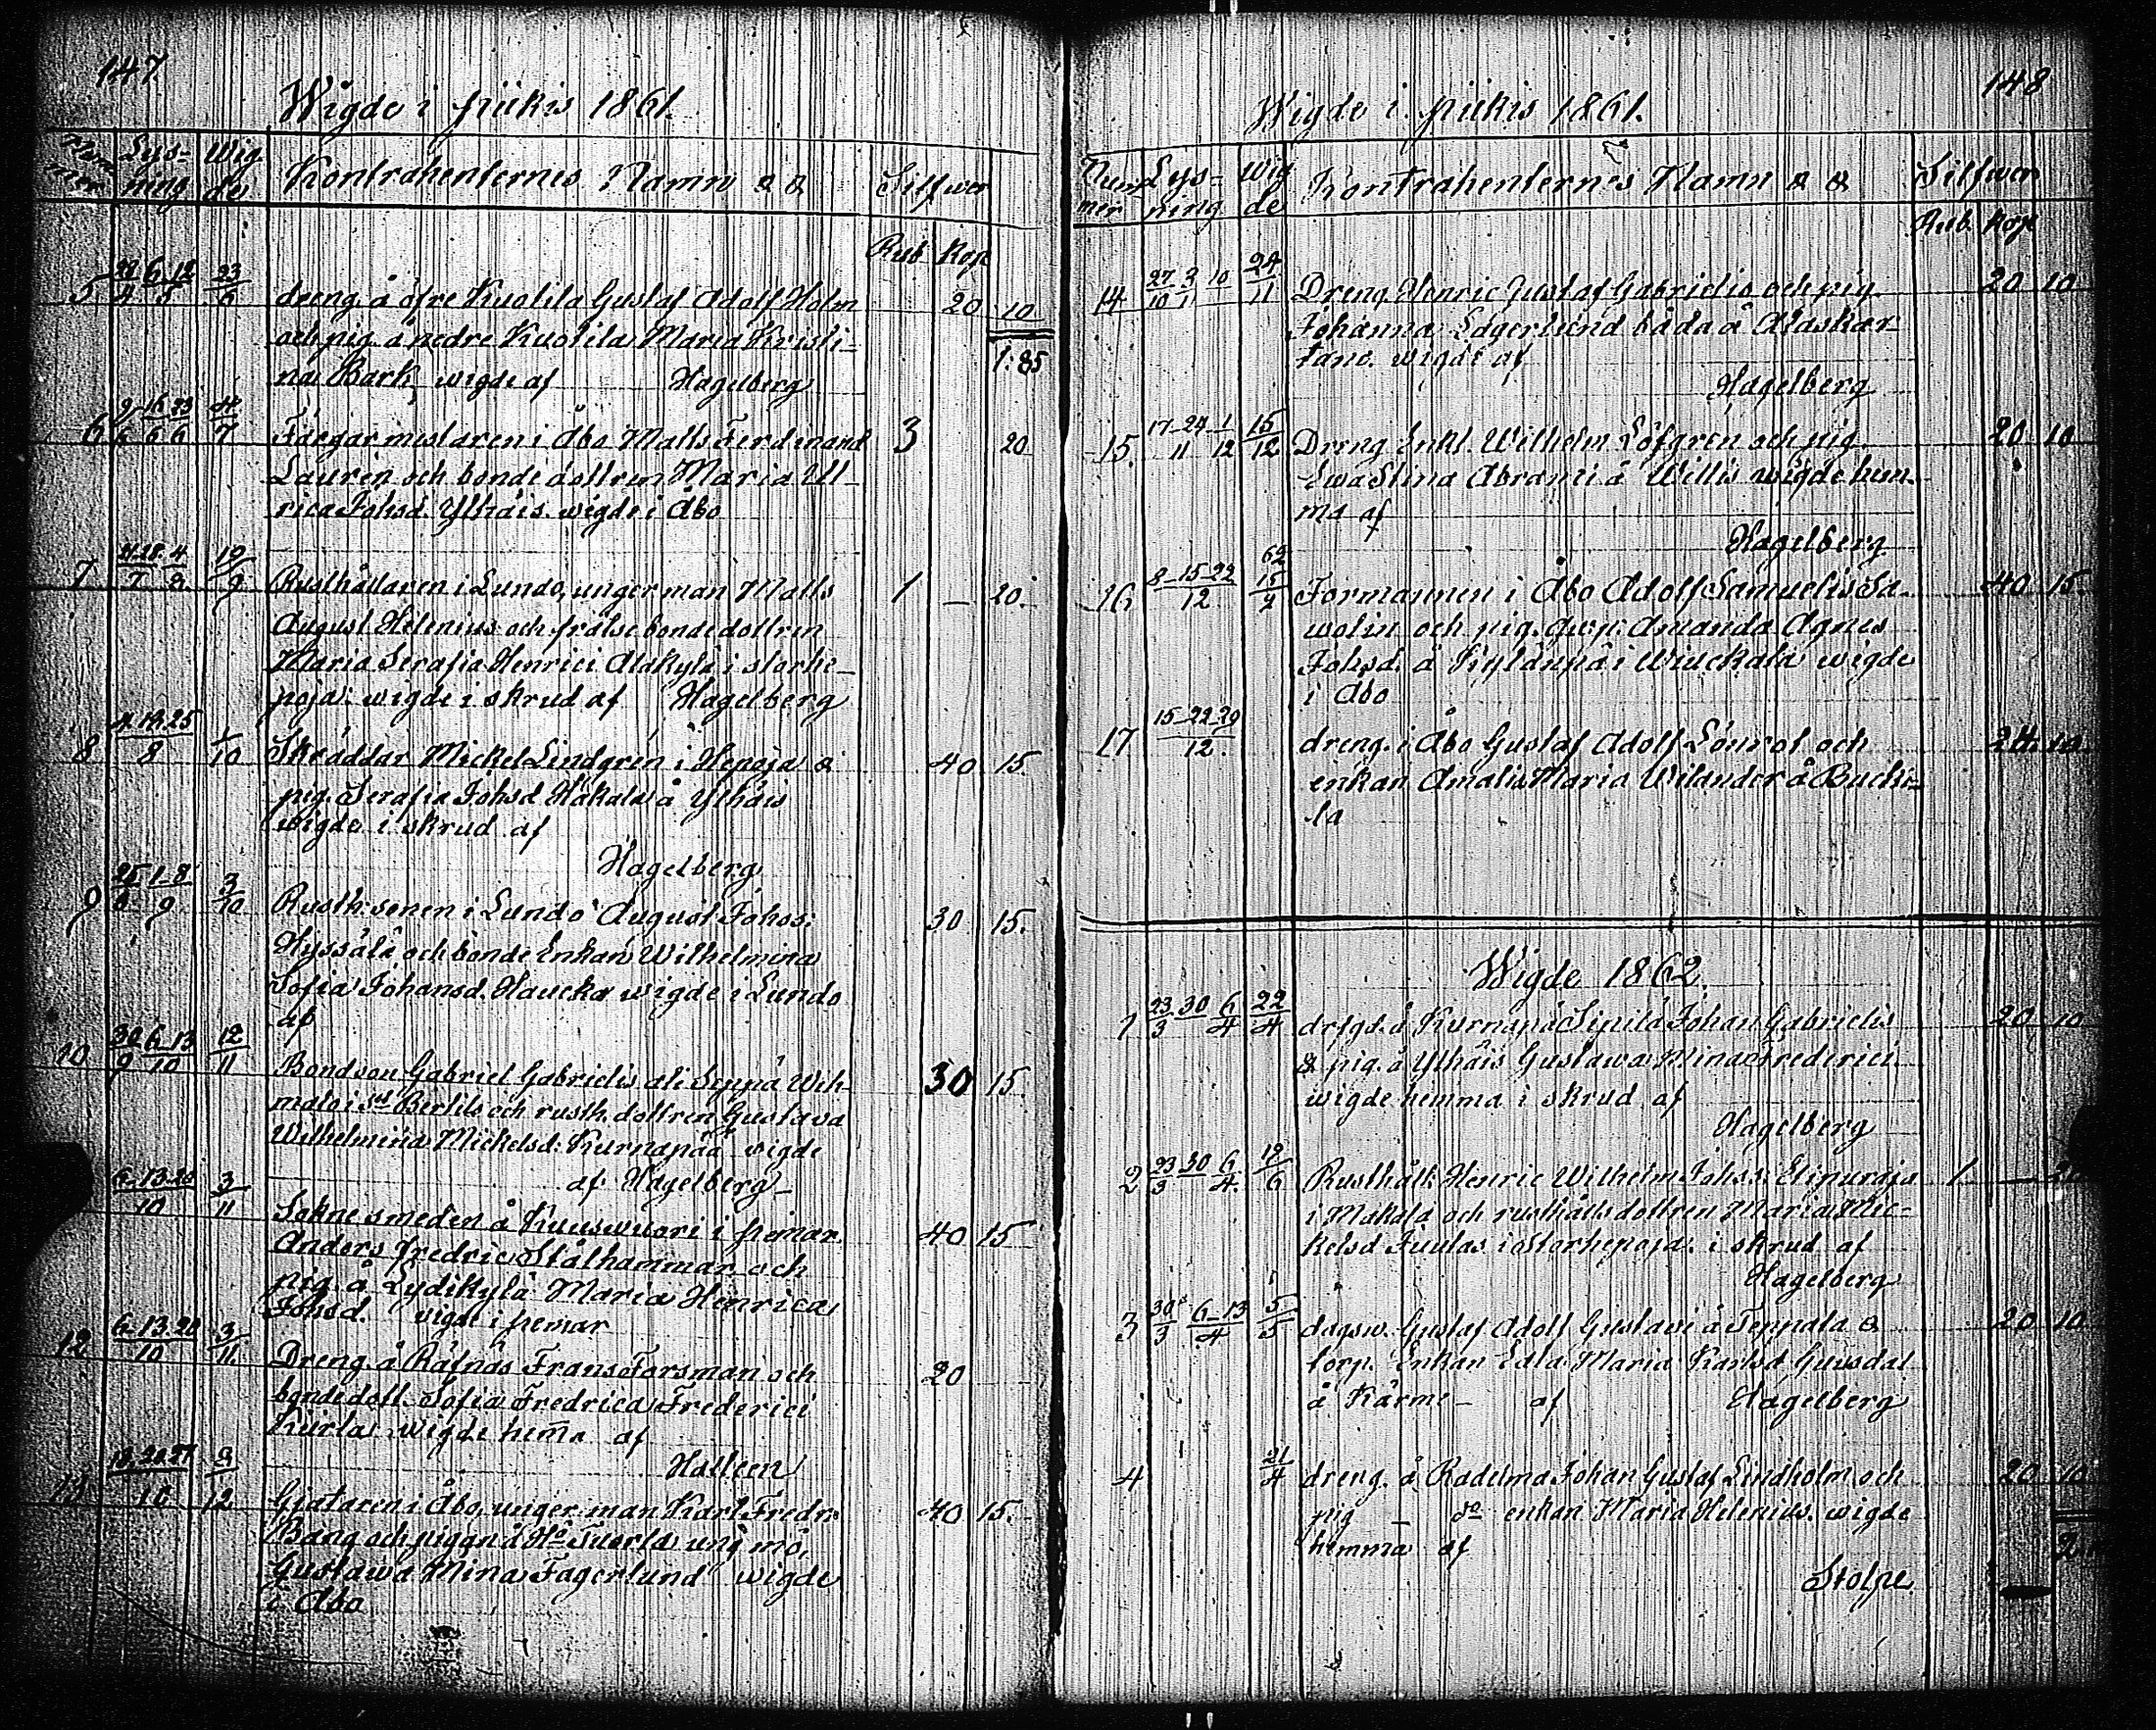 147
Wigde i piikis 1861.
Num mer Lys- ning Wig de Kontrahenternes Namn & & Silfwer
Rub Kop
5 28/4 6 12/5 23/6 dreng. å öfre Kuolila Gustaf Adolf Holm 20 10
och pig. å nedre Kuolila Maria Kristi- 1:85
na Bark wigde af Hagelberg
6 9/6 16/6 23/6 4/7 Färgar mestaren i Åbo Matts Ferdinand 3 20
Laurén och bonde dottren Maria Ul-
rica Johsd Ylhäis. wigde i Åbo
7 21 28/7 4/8 19/9 Rusthållaren i Lundo, unger man Matts 1 — 20.
August Helenius och frälse bonde dottren
Maria Serafia Henrici Alakylä i storhe-
poja: wigde i skrud af Hagelberg
8 4 18 25/8 1/10 Skräddar Mickel Lindgren i Hepoja & 40 15.
pig. Serafia Johsd Hakala å Ylhäis
wigde i skrud af
Hagelberg
9 25/8 1-8/9 3/10 Rusth: sonen i Lundo August Johss: 30 15.
Hyssälä och bonde Enkan Wilhelmina
Sofia Johansd. Haucka wigde i Lundo
af
10 30/9 6 13/10 12/11 Bondson Gabriel Gabrielis ali Seppä Wih- 30 15
mato i St Bertils och rusth. dottren Gustava
Wilhelmina Michelsd: Kurnapää wigde
af Hagelberg —
6-13-20/10 3/11 Sokne smeden å Kuuswuori i pemar 40 15
Anders fredric Stålhammar och
pig. å Lydikylä Maria Henrica
Johsd. vigde i pemar
12 6-13-20/10 3/11. Dreng. å Räfnäs Frans Forsman och 20
bondedott. Sofia Fredrica Frederici
Kurla wigde hem̄a af
Halleen
13 13. 20. 27/10 3/12 Gjutaren i Åbo, unger man Karl Fredr: 40 15.
Bang och pigan å Ho Tuorla ung mö,
Gustawa Mina Fagerlund wigde
i Åbo
148
Wigde i piikis 1861.
Num mer Lys- ning Wig de Kontrahenternes Namn & & Silfwer
Rub. Kop
14 27/10 3 10/11 24/11 Dreng. Henric Gustaf Gabrielis och pig. 20 10
Johanna Lagerlund båda å Alaskar-
tano. wigde af
Hagelberg
15. 17-24/11 1/12 15/12 Dreng Enkl. Wilhelm Löfgren och pig. 20 10
Ewa Stina Abrami å Willis wigde hem-
ma af
Hagelberg
16 8-15-22/12 62 15/2 Formannen i Åbo Adolf Samuelis Sa- 40 15.
wolin och pig. Amanda Agnes
Johsd. å Kylänpä i Wiuckala wigde
i Åbo
17 15-22-29/12. dreng. i Åbo Gustaf Adolf Lönrot och 24. 10
enkan Amalia Maria Wilander å Bucki-
la
Wigde 1862.
1 23/3 30 6/4 22/4 å Kurnapä Sipilä Johan Gabrielis 20 10
& pig. å Ylhäis Gustawa Mina Frederici.
wigde hemma i skrud af
Hagelberg
2 23/3 30 6/4. 19/6 Rusthåll: Henric Wilhelm Johss: 1 —
i Makala och rusthålls dottren Maria Mic-
kelsd Juulas i Storhepoja: i skrud af
Hagelberg
3 30/3 6-13/4 5/5 dagsw. Gustaf Adolf Gustavi å Teppala & 20 10
torp. Enkan Edla Maria Karlsd Guusdal
å Kärme — af Hagelberg
4 21/4 dreng. å Radelma Johan Gustaf Lindholm och 20 10
pig — do enkan Maria Helenius. wigde
hemma af
Stolpe